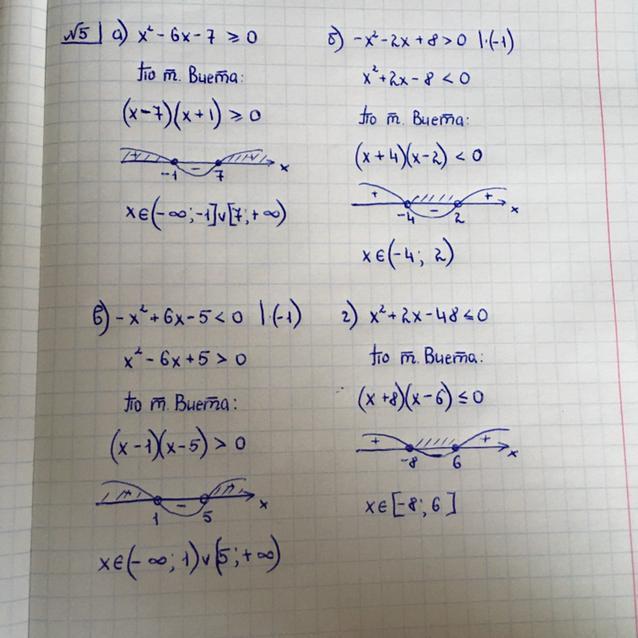 №5 а) x² - 6x - 7 ≥ 0
По т. Виета:
(x-7)(x+1) ≥ 0
+ - +
-1 7 x
x∈(-∞;-1]∪[7;+∞)
б) -x² - 2x + 8 > 0 |·(-1)
x² + 2x - 8 < 0
По т. Виета:
(x+4)(x-2) < 0
+ - +
-4 2 x
x∈(-4; 2)
в) -x² + 6x - 5 < 0 |·(-1)
x² - 6x + 5 > 0
По т. Виета:
(x-1)(x-5) > 0
+ - +
1 5 x
x∈(-∞;1)∪(5;+∞)
г) x² + 2x - 48 ≤ 0
По т. Виета:
(x+8)(x-6) ≤ 0
+ - +
-8 6 x
x∈[-8;6]